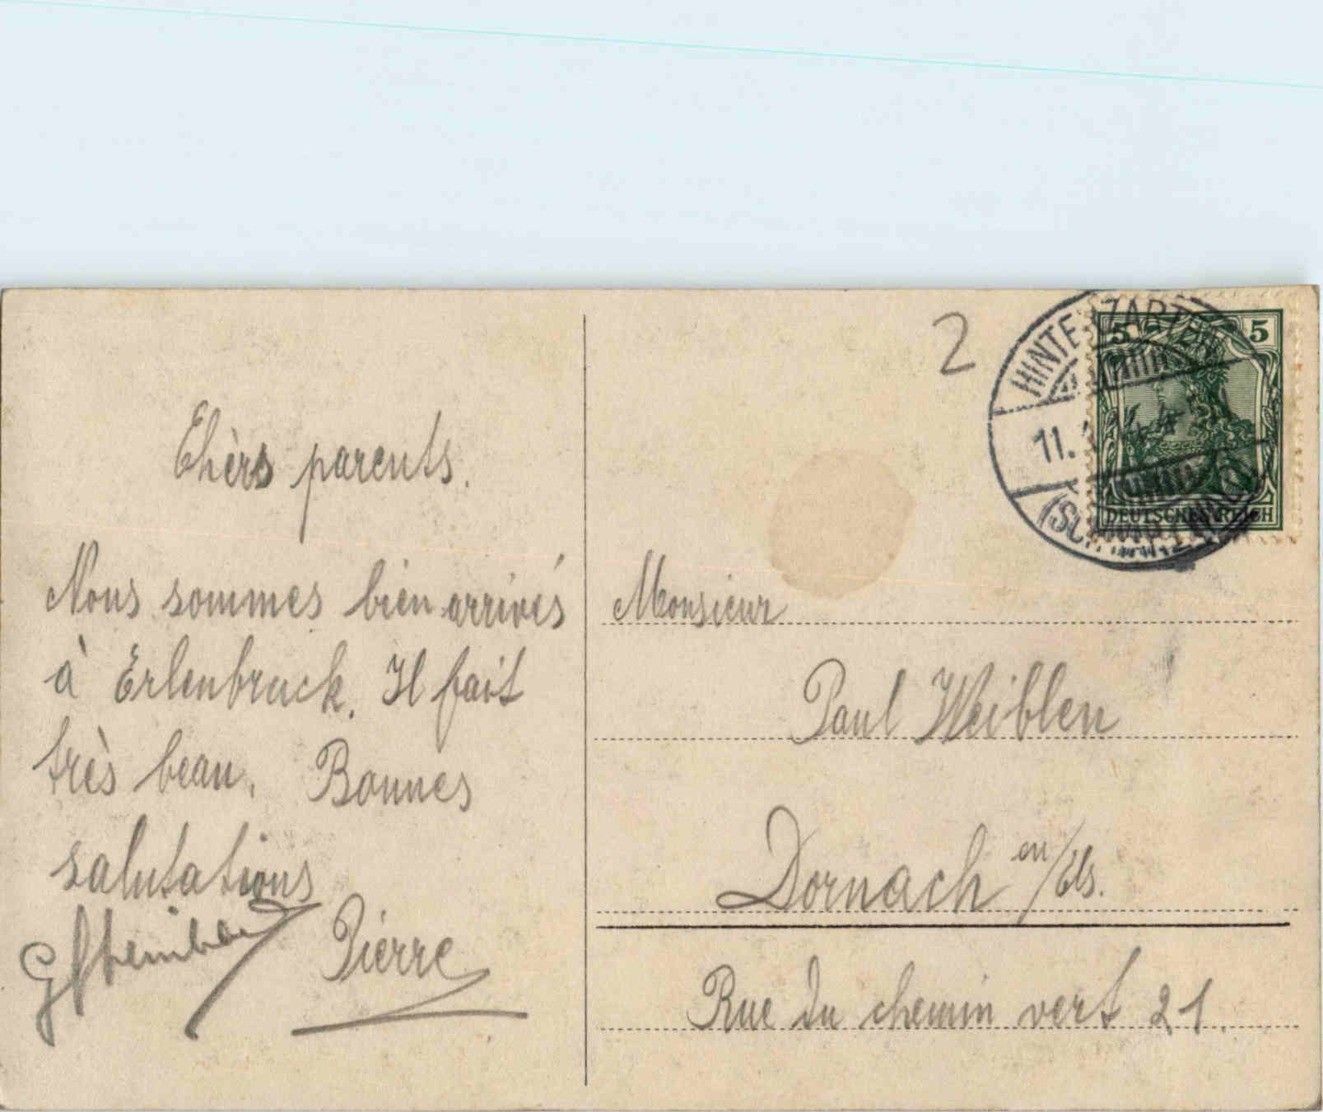 Chèrs parents.
Nous sommes bien arrivés
à Erlenbruck. Il fait
très beau. Bonnes
salutations
Pierre
2
HINTERZARTEN
11.
5 5
DEUTSCHES REICH
Monsieur
Paul Weiblen
Dornach en/Els.
Rue du chemin vert 21.